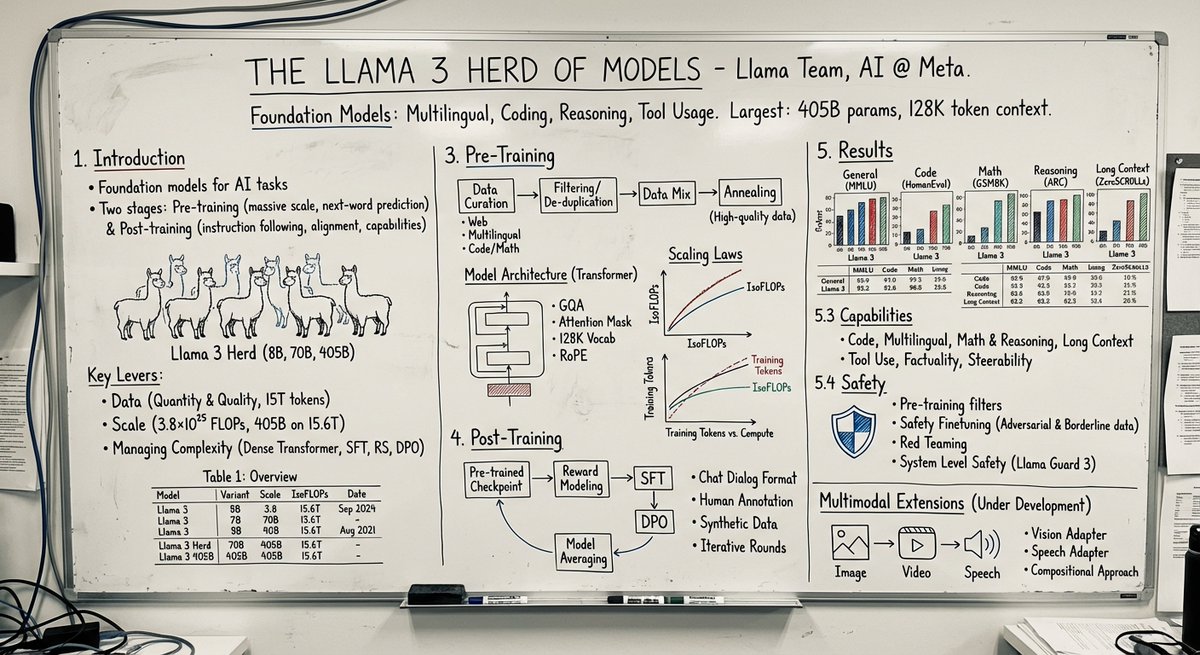 THE LLAMA 3 HERD OF MODELS – Llama Team, AI @ Meta.
Foundation Models: Multilingual, Coding, Reasoning, Tool Usage. Largest: 405B params, 128K token context.
1. Introduction
• Foundation models for AI tasks
• Two stages: Pre-training (massive scale, next-word prediction)
& Post-training (instruction following, alignment, capabilities)
Llama 3 Herd (8B, 70B, 405B)
Key Levers:
• Data (Quantity & Quality, 15T tokens)
• Scale (3.8×10²⁵ FLOPs, 405B on 15.6T)
• Managing Complexity (Dense Transformer, SFT, RS, DPO)
Table 1: Overview
Model Variant Scale IsoFLOPs Date
Llama 3 3.8 15.6T Sep 2024
Llama 3 70B 13.6T -
Llama 3 15.6T Aug 2021
Llama 3 Herd 70B 405B 15.6T -
Llama 3 405B 405B 405B 15.6T -
3. Pre-Training
Data Curation
Filtering/ De-duplication
Data Mix
Annealing
• Web
• Multilingual
• Code/Math
(High-quality data)
Model Architecture (Transformer)
• GQA
• Attention Mask
• 128K Vocab
• RoPE
Scaling Laws
IsoFLOPs
IsoFLOPs
IsoFLOPs
Training Tokens
Training Tokens
IsoFLOPs
Training Tokens vs. Compute
4. Post-Training
Pre-trained Checkpoint
Reward Modeling
SFT
DPO
Model Averaging
• Chat Dialog Format
• Human Annotation
• Synthetic Data
• Iterative Rounds
5. Results
General (MMLU)
Code (HumanEval)
Math
Reasoning (ARC)
Long Context
Llama 3
Llama 3
Llama 3
Llama 3
Llama 3
MMLU Code Math
General
Llama 3
MMLU Code Math
Code
Reasoning
Long Context
5.3 Capabilities
• Code, Multilingual, Math & Reasoning, Long Context
• Tool Use, Factuality, Steerability
5.4 Safety
• Pre-training filters
• Safety Finetuning (Adversarial & Borderline data)
• Red Teaming
• System Level Safety (Llama Guard 3)
Multimodal Extensions (Under Development)
Image
Video
Speech
• Vision Adapter
• Speech Adapter
• Compositional Approach